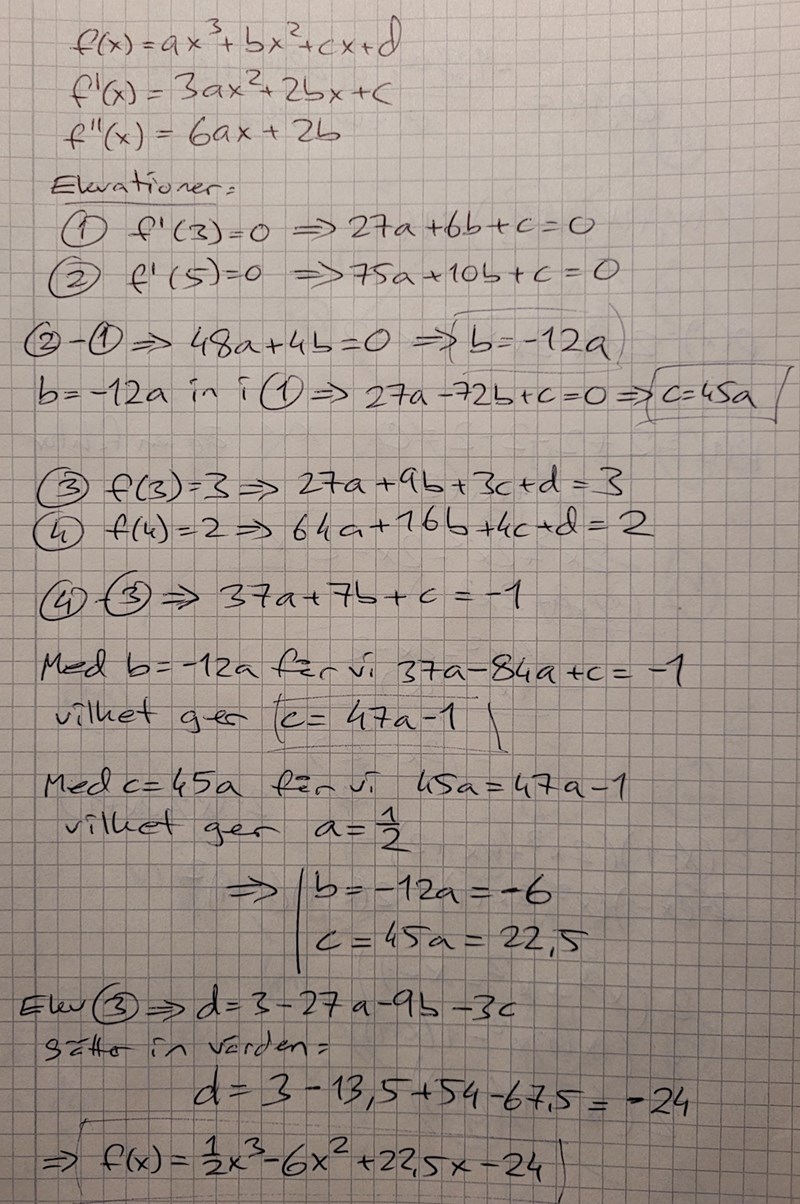 f(x) = ax³ + bx² + cx + d
f'(x) = 3ax² + 2bx + c
f''(x) = 6ax + 2b
Ekvationer:
① f'(3)=0 ⇒ 27a + 6b + c = 0
② f'(5)=0 ⇒ 75a + 10b + c = 0
② - ① ⇒ 48a + 4b = 0 ⇒ b = -12a
b = -12a in i ① ⇒ 27a - 72b + c = 0 ⇒ c = 45a
③ f(3) = 3 ⇒ 27a + 9b + 3c + d = 3
④ f(4) = 2 ⇒ 64a + 16b + 4c + d = 2
④ - ③ ⇒ 37a + 7b + c = -1
Med b = -12a får vi 37a - 84a + c = -1
vilket ger c = 47a - 1
Med c = 45a får vi 45a = 47a - 1
vilket ger a = 1/2
⇒ | b = -12a = -6
| c = 45a = 22,5
Ekv ③ ⇒ d = 3 - 27a - 9b - 3c
sätter in värden:
d = 3 - 13,5 + 54 - 67,5 = -24
⇒ f(x) = 1/2x³ - 6x² + 22,5x - 24